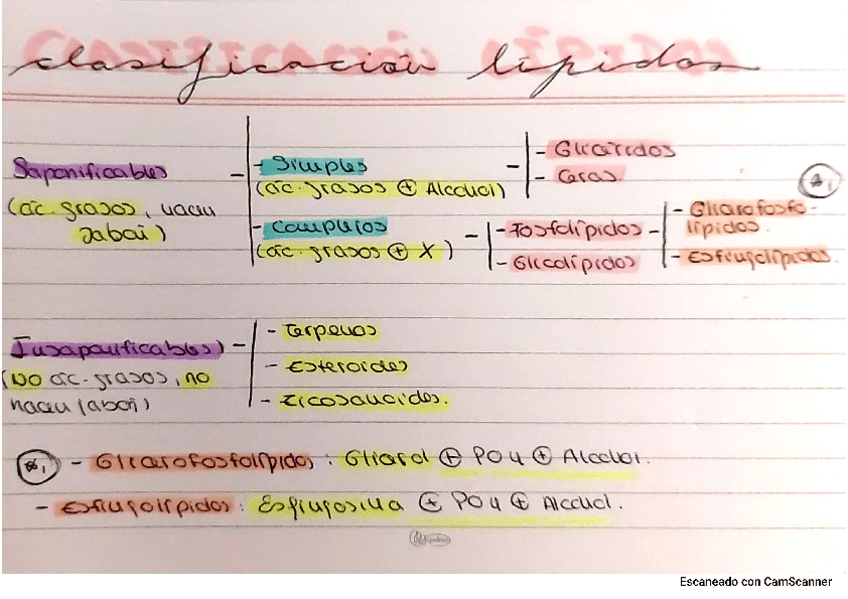 clasificación lípidos
Saponificables
(ác. grasos, hacen
Jabón)
- Simples
(ác. grasos + Alcohol)
- Glicéridos
- Ceras
*1
- Complejos
(ác. grasos + X)
- Fosfolípidos
- Glicolípidos
- Glicerofosfo-
lípidos.
- Esfingolípidos.
Insaponificables)
(NO ác. grasos, no
hacen jabón)
- Terpenos
- Esteroides
- Eicosanoides.
*1 - Glicerofosfolípidos: Glicerol + PO4 + Alcohol.
- Esfingolípidos: Esfingosina + PO4 + Alcohol.
Escaneado con CamScanner